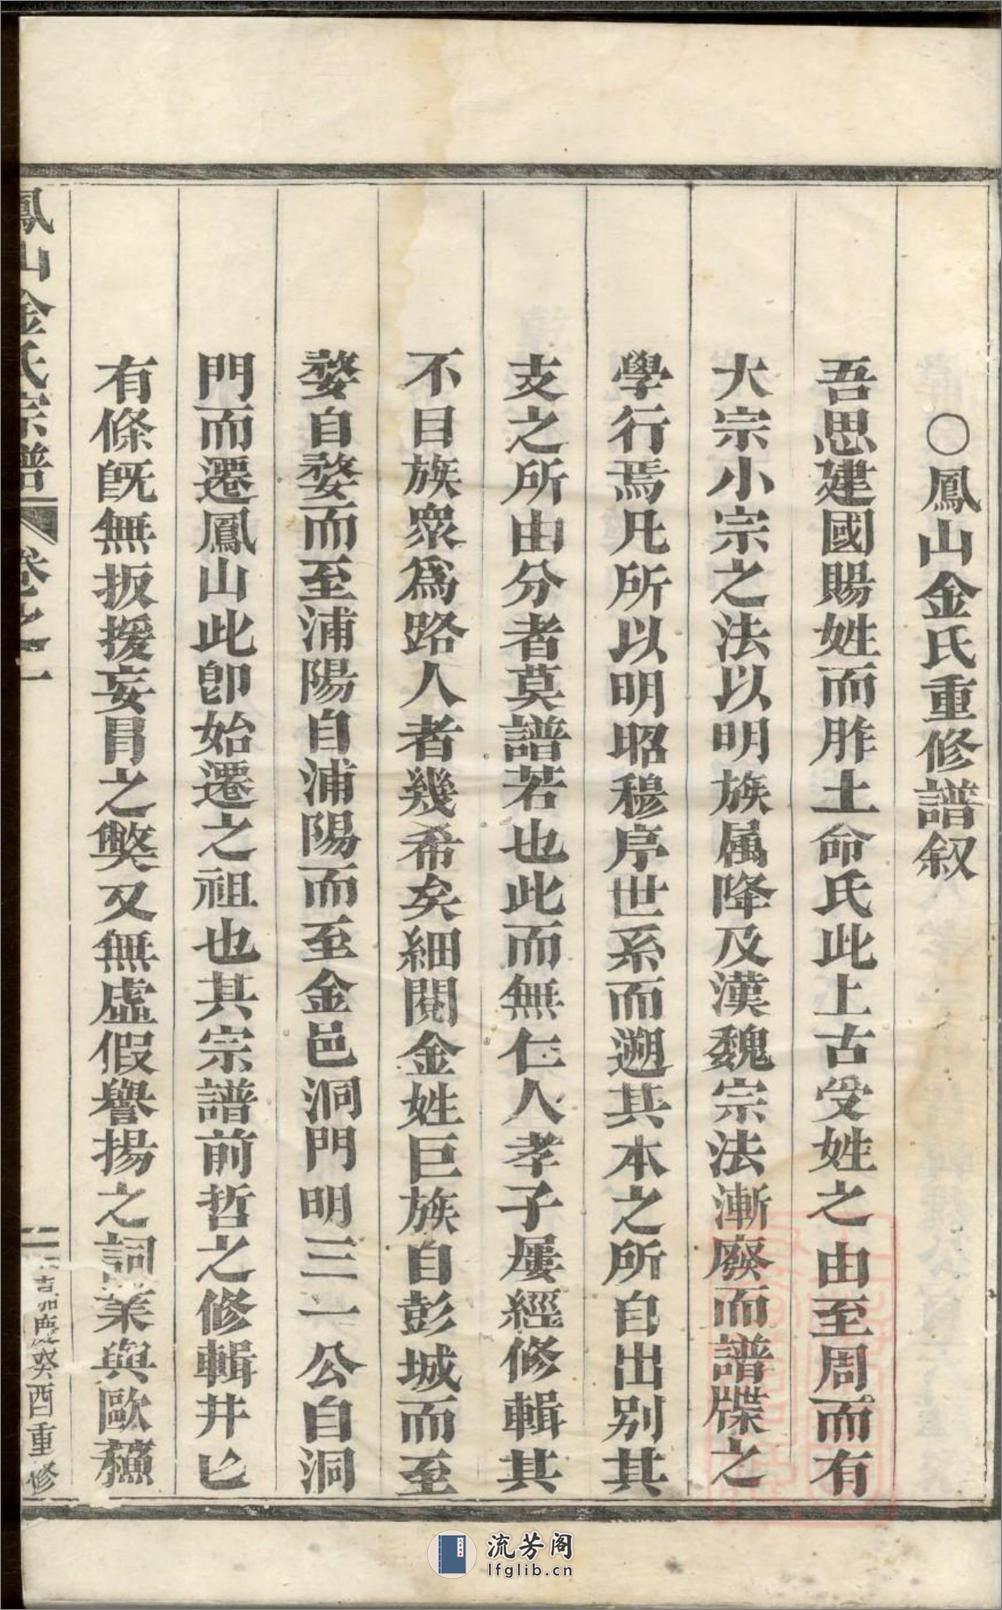 〇鳳山金氏重修譜叙
吾思建國賜姓而胙土命氏此上古受姓之由至周而有
大宗小宗之法以明族属降及漢魏宗法漸廢而譜牒之
學行焉凡所以明昭穆序世系而遡其本之所自出别其
支之所由分者莫譜若也此而無仁人孝子屢經修輯其
不目族衆爲路人者幾希矣細閱金姓巨族自彭城而至
婺自婺而至浦陽自浦陽而至金邑洞門明三一公自洞
門而遷鳳山此卽始遷之祖也其宗譜前哲之修輯井匕
有條旣無扳援妄冐之獘又無虛假譽揚之詞業與歐蘇
鳳山金氏宗譜 卷之一
二 嘉慶癸酉重修
流芳阁
lfglib.cn